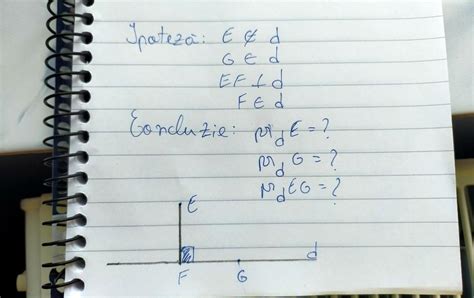 Ipoteză: E ∉ d
G ∈ d
EF ⊥ d
F ∈ d
Concluzie: pr_d E = ?
pr_d G = ?
pr_d EG = ?
E
d
F G